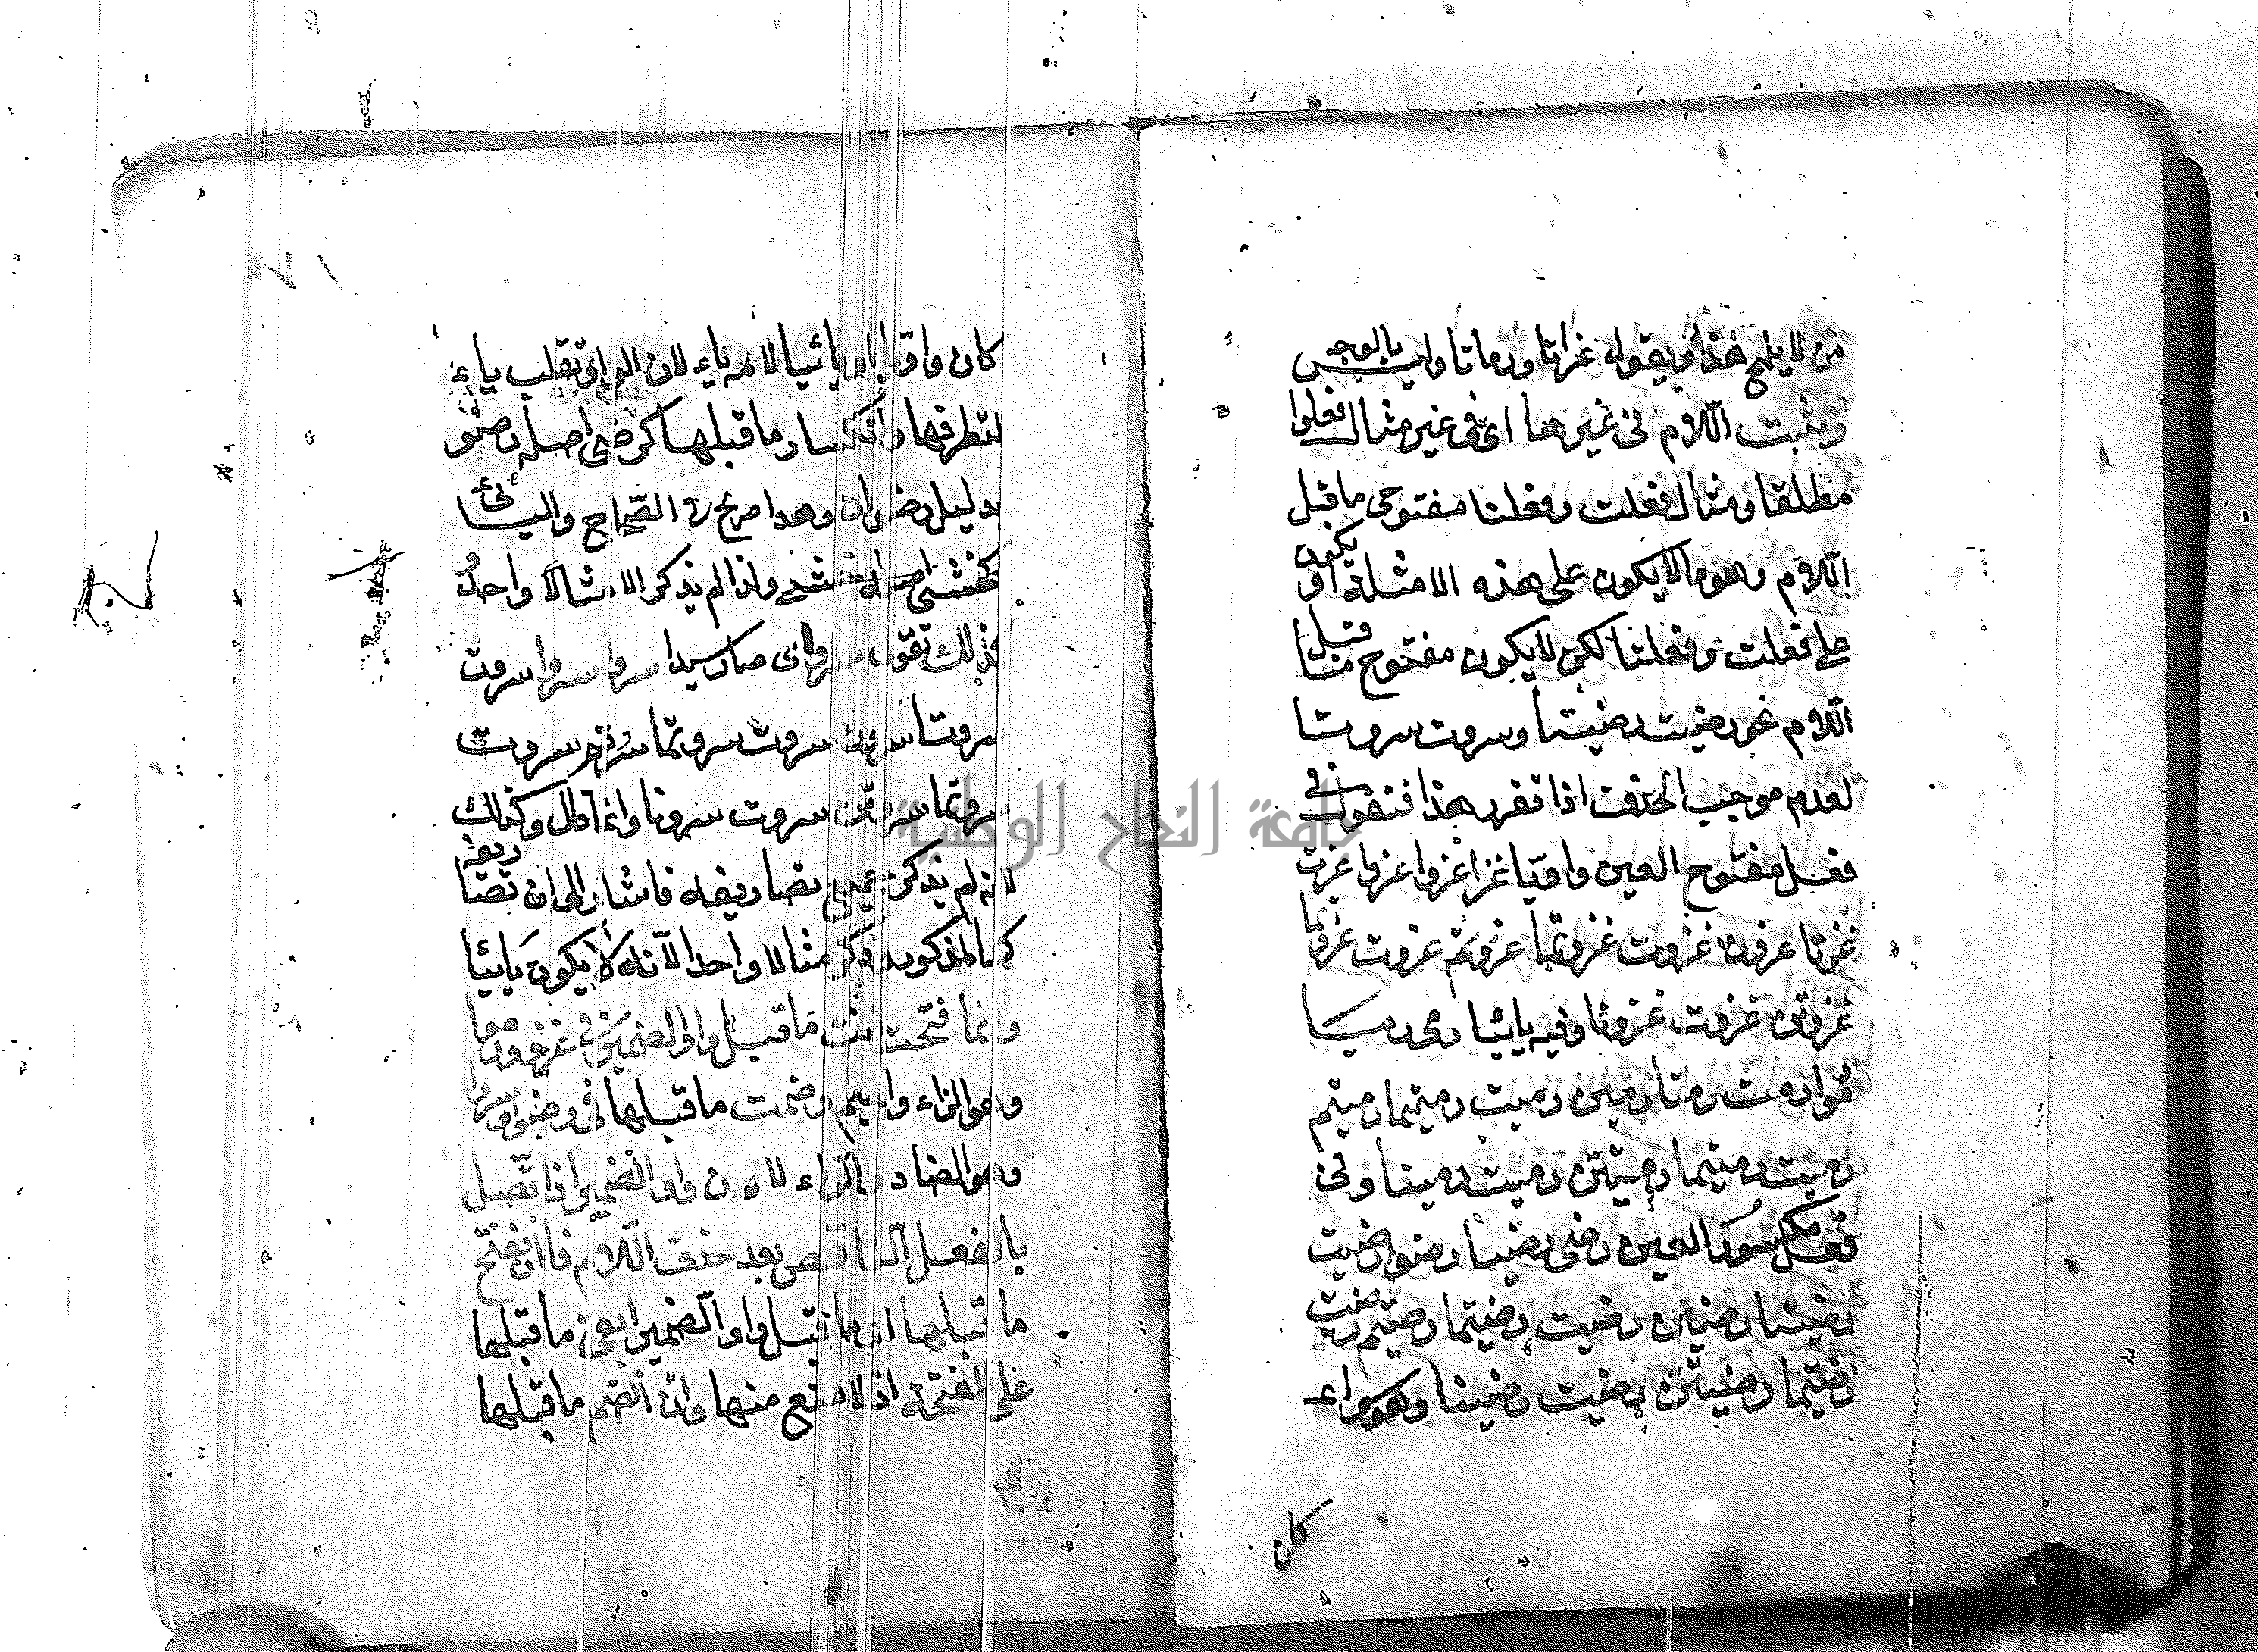 من لا يلمح هذا ويقول غزاتا ورماتا وليس بالوجه
ويثبت اللام في غيرها اى فى غير مثال فعلوا
مطلقا ومثال فعلت وفعلتا مفتوحى ما قبل
اللام وهو ما لا يكون على هذه الامثلة او يكون
على فعلت وفعلتا لكن لا يكون مفتوح ما قبل
اللام نحو رضيت رضيتا وسروت سروتا
لعدم موجب الحذف اذا تقرر هذا فتقول في
فعل مفتوح العين واويّا غزا غزوا غزوا غزت
غزتا غزون غزوت غزوتما غزوتم غزوت غزوتما
غزوتن غزوت غزونا وفيه يائيا رمى رميا
رموا رمت رمتا رمين رميت رميتما رميتم
رميت رميتما رميتن رميت رمينا وفى
فعل مكسور العين رضى رضيا رضوا رضيت
رضيتا رضين رضيت رضيتما رضيتم رضيت
رضيتما رضيتن رضيت رضينا وهو سواء
كان
كان واويا او يائيا لامه ياء لان الواو تقلب ياء
لتطرفها وانكسار ما قبلها كرضى اصله رضو
بدليل رضوان وهذا صرح به الصحاح واليائى
كخشى اصله خشى ولذا لم يذكر الا مثالا واحدا و
كذلك تقول سرو اى صار سيدا سروا سروا سروت
سروتا سرون سروت سروتما سروتم سروت
سروتما سروتن سروت سرونا وانما قال وكذلك
لانه لم يذكر جميع تصاريفه فاشار الى ان تصاريفه
كالمذكور وذكر مثالا واحدا لانه لا يكون يائيا
وانما فتحت انت ما قبل واو الضمير في غزوا ورموا
وهو الزاء والميم وضمت ما قبلها فى رضوا وسروا
وهو الضاد والراء لان واو الضمير اذا اتصل
بالفعل الناقص بعد حذف اللام فان انفتح
ما قبلها اى ما قبل واو الضمير ابقى ما قبلها
على الفتحة اذ لا مانع منها وان انضم ما قبلها
جامعة النجاح الوطنية